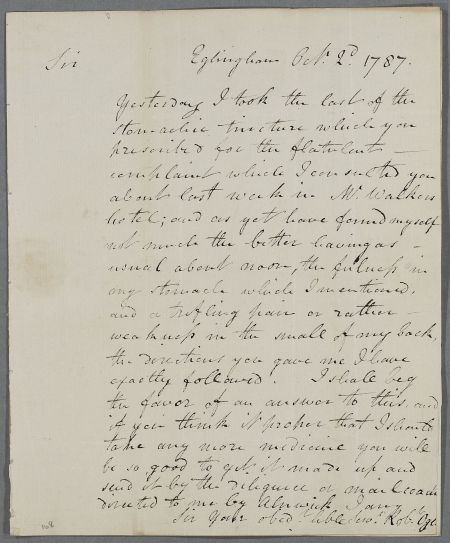 Sir Eglingham Octr. 2d. 1787.
Yesterday I took the last of the
stomachic tincture which you
prescribed for the flatulent
complaint which I consulted you
about last week in Mr. Walkers
hotel; and as yet have found myself
not much the better having as
usual about noon, the fulness in
my stomach which I mentioned,
and a trifling pain or rather
weakness in the small of my back,
the directions you gave me I have
exactly followed. I shall beg
the favor of an answer to this, and
if you think it proper that I should
take any more medicine you will
be so good to get it made up and
send it by the diligence or mail coach
directed to me by Alnwick I am
Sir Your obedt. Servt. Robt.